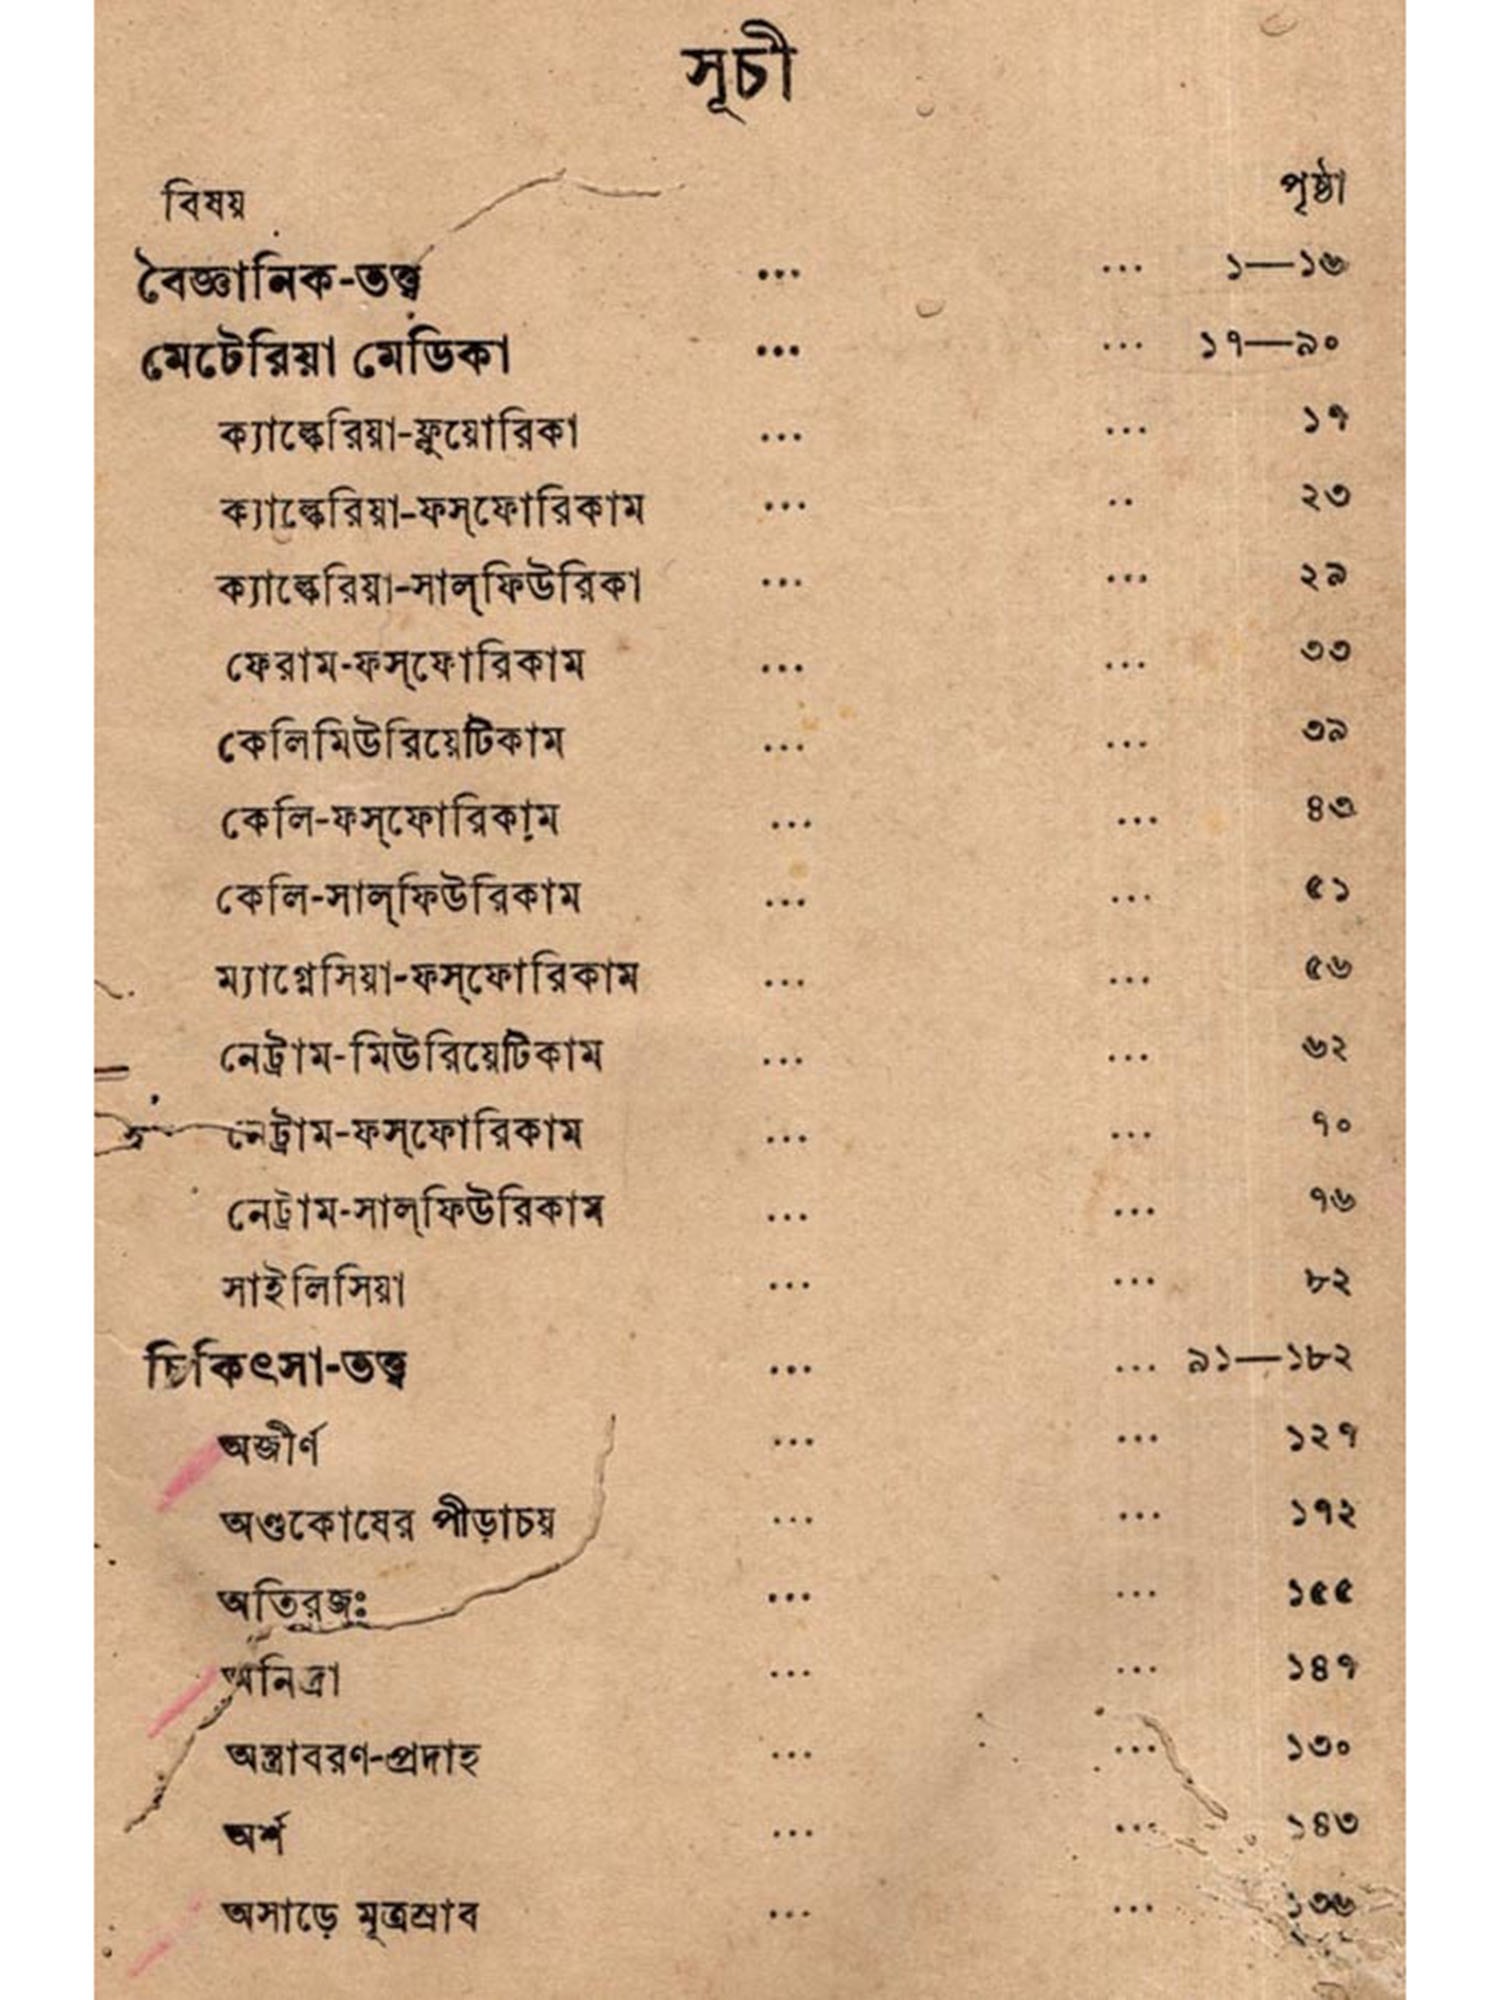 সূচী
বিষয় পৃষ্ঠা
বৈজ্ঞানিক-তত্ত্ব ... ... ১—১৬
মেটেরিয়া মেডিকা ... ... ১৭—৯০
ক্যাল্কেরিয়া-ফ্লুয়োরিকা ... ... ১৭
ক্যাল্কেরিয়া-ফস্‌ফোরিকাম ... .. ২৩
ক্যাল্কেরিয়া-সাল্‌ফিউরিকা ... ... ২৯
ফেরাম-ফস্‌ফোরিকাম ... ... ৩৩
কেলিমিউরিয়েটিকাম ... ... ৩৯
কেলি-ফস্‌ফোরিকাম ... ... ৪৩
কেলি-সাল্‌ফিউরিকাম ... ... ৫১
ম্যাগ্নেসিয়া-ফস্‌ফোরিকাম ... ... ৫৬
নেট্রাম-মিউরিয়েটিকাম ... ... ৬২
নেট্রাম-ফস্‌ফোরিকাম ... ... ৭০
নেট্রাম-সাল্‌ফিউরিকাম ... ... ৭৬
সাইলিসিয়া ... ... ৮২
চিকিৎসা-তত্ত্ব ... ... ৯১—১৮২
অজীর্ণ ... ... ১২৭
অণ্ডকোষের পীড়াচয় ... ... ১৭২
অতিরজঃ ... ... ১৫৫
অনিদ্রা ... ... ১৪৭
অন্ত্রাবরণ-প্রদাহ ... ... ১৩০
অর্শ ... ... ১৪৩
অসাড়ে মূত্রস্রাব ... ... ১৩৬